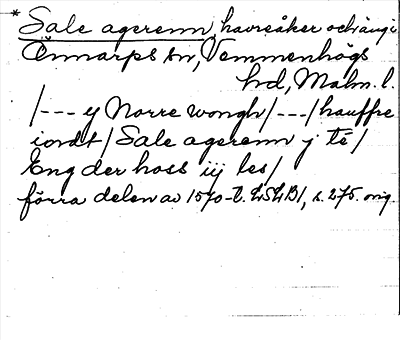 * Sale agerenn, havreåker och äng i
Önnarps sn, Vemmenhögs
hd, Malm. l.
/--- y Norre wongh/---/hauffre
iordt/Sale agerenn j tē/
Eng der hoss iij les/
förra delen av 1570-t. LSLB1, s. 275. orig.